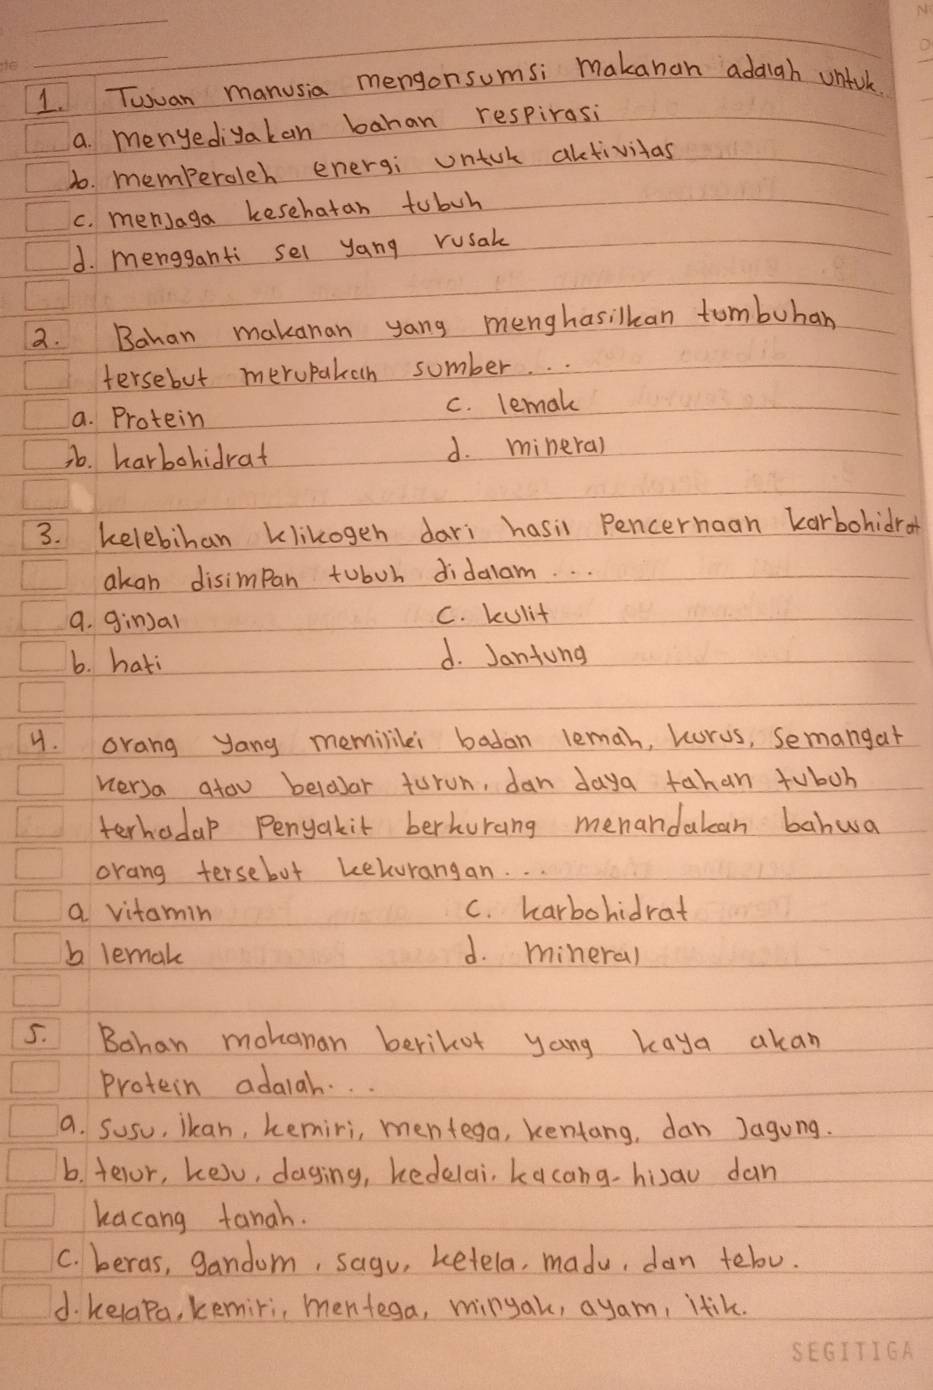 1. Tujuan manusia mengonsumsi makanan adalah untuk.
a. menyediyakan bahan respirasi
b. memperoleh energi untuk aktivitas
c. menjaga kesehatan tubuh
d. mengganti sel yang rusak
2. Bahan makanan yang menghasilkan tumbuhan
tersebut merupakan sumber...
a. Protein c. lemak
b. karbohidrat d. mineral
3. kelebihan klikogen dari hasil Pencernaan karbohidrat
akan disimpan tubuh didalam...
a. ginjal c. kulit
b. hati d. Jantung
4. orang yang memiliki badan lemah, kurus, semangat
kerja atau belajar turun, dan daya tahan tubuh
terhadap Penyakit berkurang menandakan bahwa
orang tersebut kekurangan...
a vitamin c. karbohidrat
b lemak d. mineral
5. Bahan makanan berikut yang kaya akan
Protein adalah...
a. susu, ikan, kemiri, mentega, kentang, dan Jagung.
b. telur, keju, daging, kedelai, kacang-hijau dan
kacang tanah.
c. beras, gandum, sagu, ketela, madu, dan tebu.
d. kelapa, kemiri, mentega, minyak, ayam, itik.
SEGITIGA